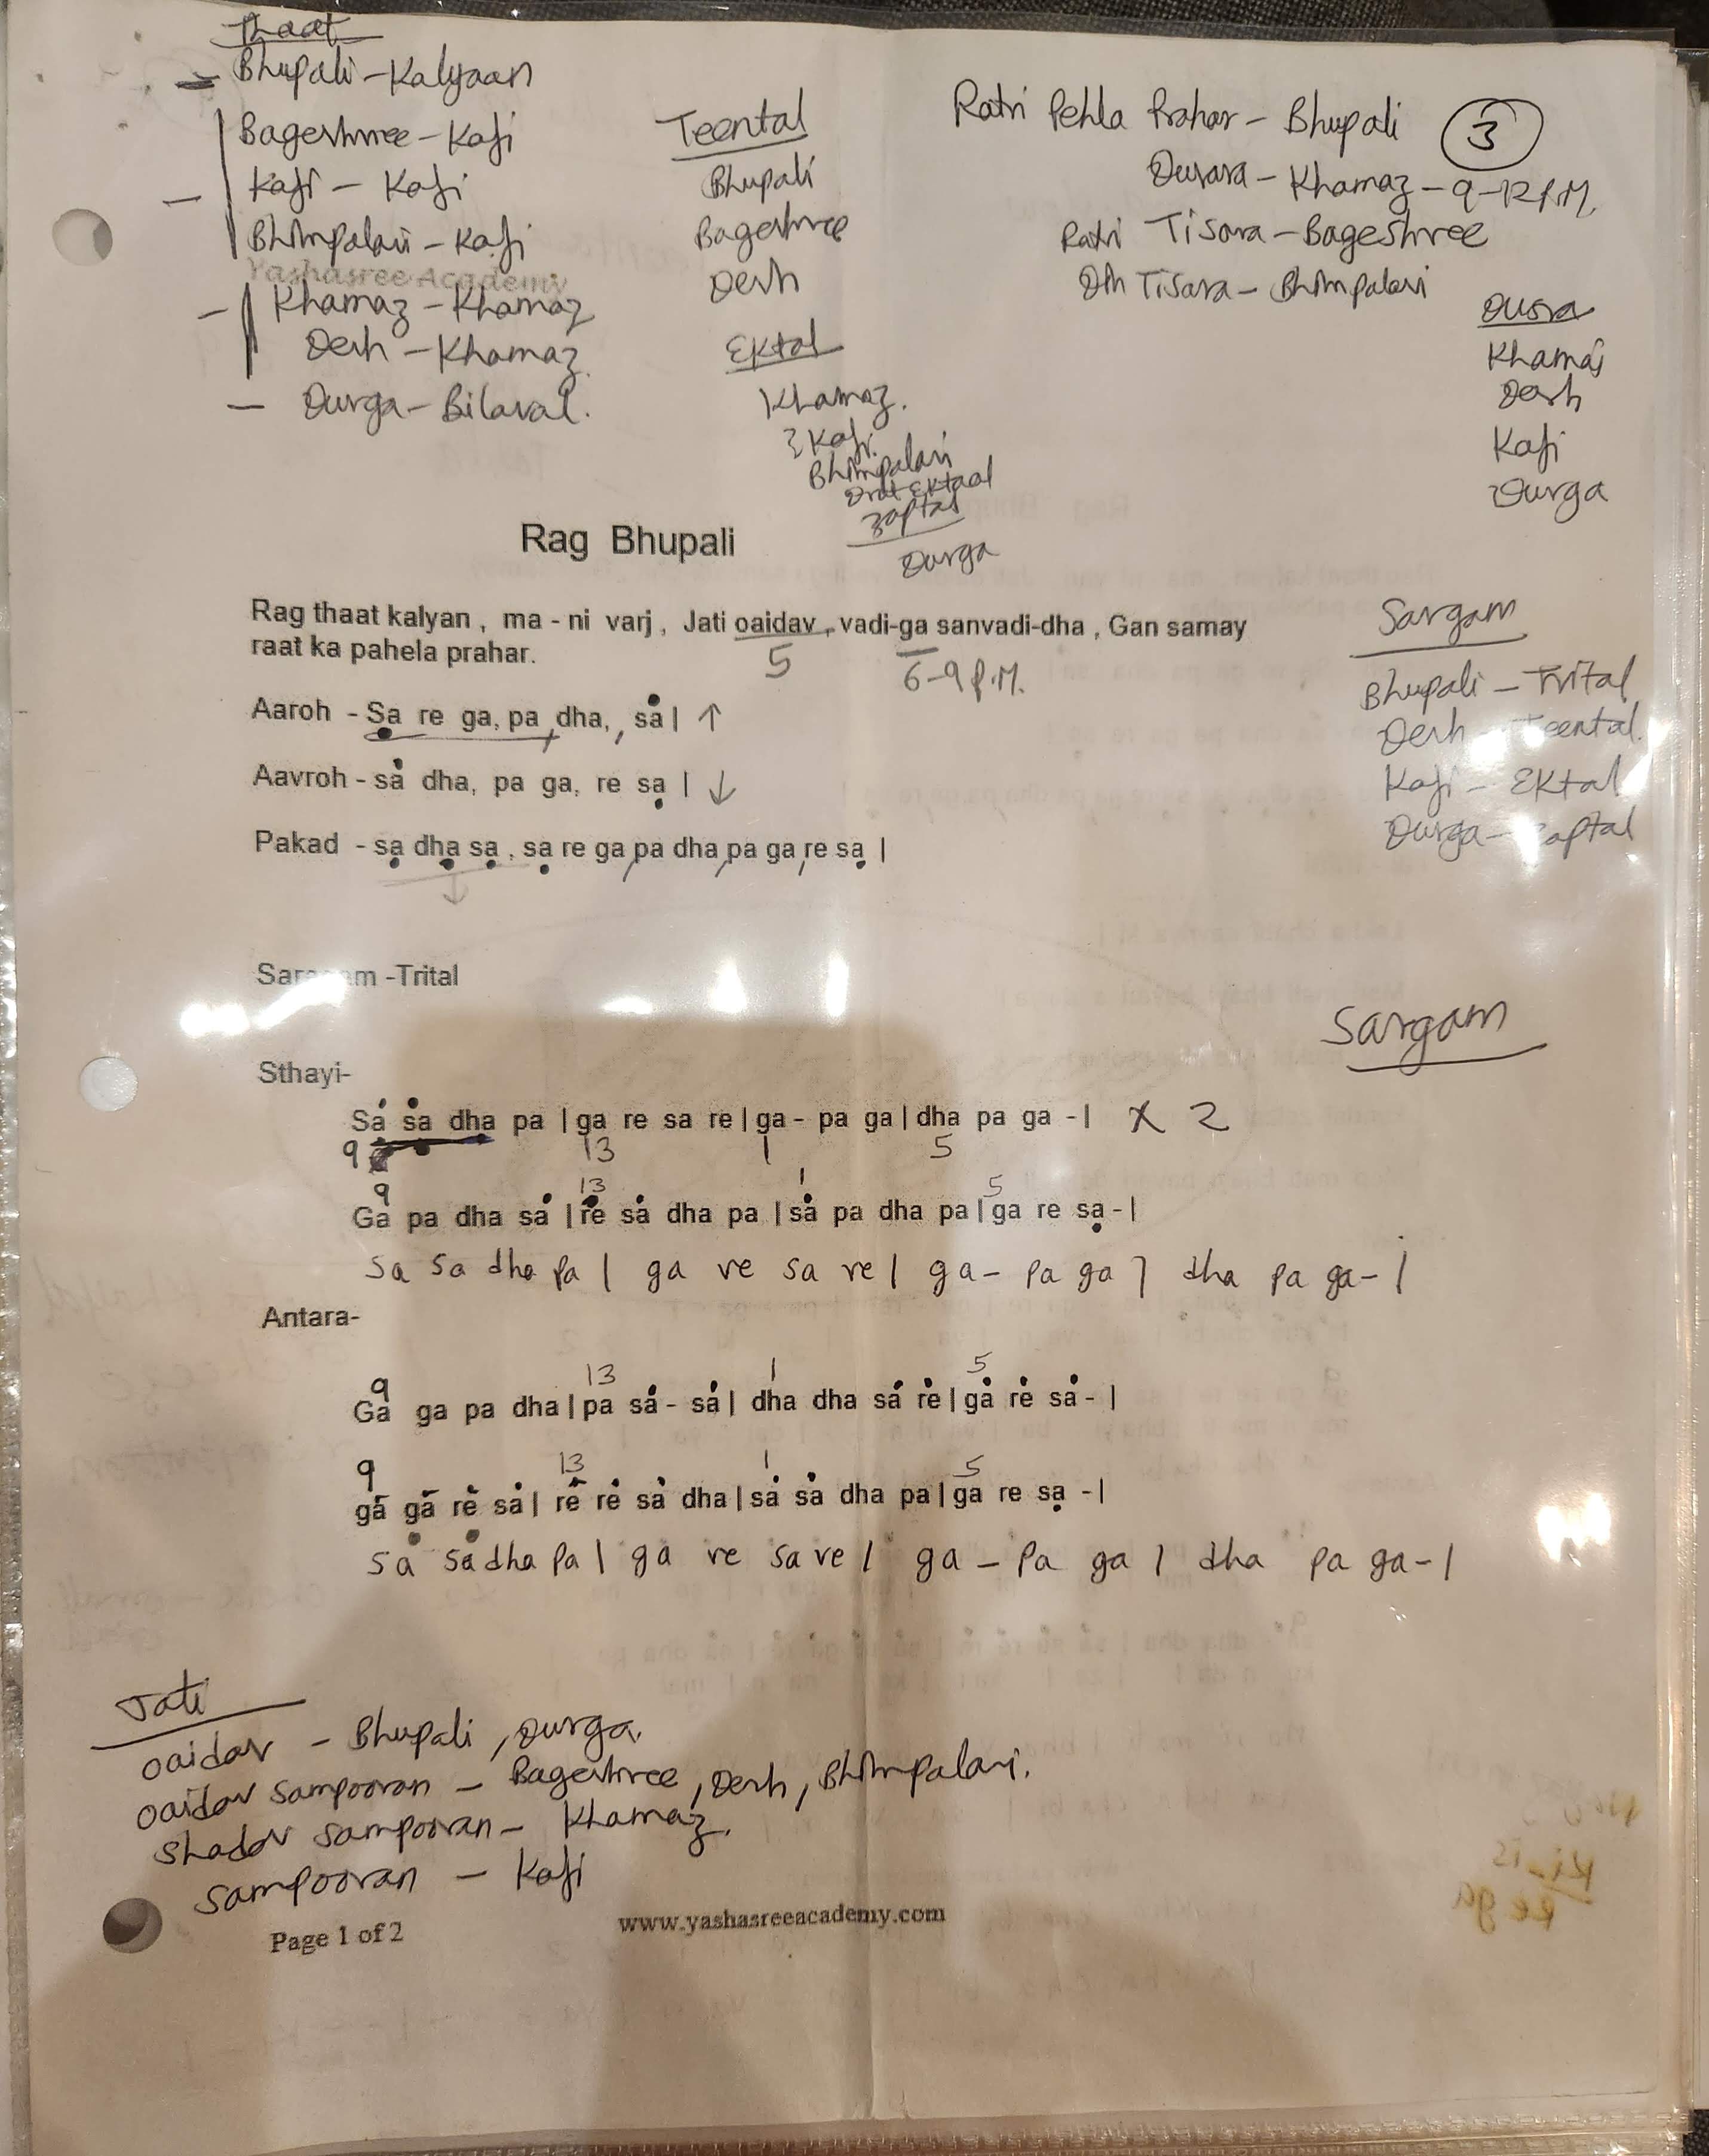 Thaat
Bhupali - Kalyaan
Bageshree - Kafi
Kafi - Kafi
Bhimpalasi - Kafi
Yashasree Academy
Khamaz - Khamaz
Desh - Khamaz
Durga - Bilaval.
Teental
Bhupali
Bageshree
Desh
Ektal
Khamaz.
Kafi.
Bhimpalasi
Drut Ektaal
Zaptal
Durga
Ratri Pehla Prahar - Bhupali
3
Dusara - Khamaz - 9-12 P.M.
Ratri Tisara - Bageshree
Din Tisara - Bhimpalasi
Dusra
Khamaj
Desh
Kafi
Durga
Rag Bhupali
Rag thaat kalyan , ma - ni varj , Jati oaidav , vadi-ga sanvadi-dha , Gan samay
raat ka pahela prahar.
5
6-9 P.M.
Sargam
Bhupali - Trital
Desh - Teental.
Kafi - Ektal
Durga - Zaptal
Aaroh - Sạ re ga, pa, dha, , sȧ | ↑
Aavroh - sȧ dha, pa ga, re sạ | ↓
Pakad - sạ dhạ sạ , sạ re ga, pa dha, pa ga, re sạ |
-Trital
Sargam
Sthayi-
Sȧ sȧ dha pa | ga re sa re | ga - pa ga | dha pa ga - | x 2
9 13 1 5
9 13 1 5
Ga pa dha sȧ | rė sȧ dha pa | sȧ pa dha pa | ga re sạ - |
Sa sa dha pa | ga re sa re | ga - pa ga | dha pa ga - |
Antara-
9 13 1 5
Ga ga pa dha | pa sȧ - sȧ | dha dha sȧ rė | gȧ rė sȧ - |
9 13 1 5
gȧ gȧ rė sȧ | rė rė sȧ dha | sȧ sȧ dha pa | ga re sạ - |
sȧ sȧ dha pa | ga re sa re | ga - pa ga | dha pa ga - |
Jati
Oaidav - Bhupali, Durga.
Oaidav Sampooran - Bageshree, Desh, Bhimpalasi.
Shadav Sampooran - Khamaz.
Sampooran - Kafi
Page 1 of 2
www.yashasreeacademy.com